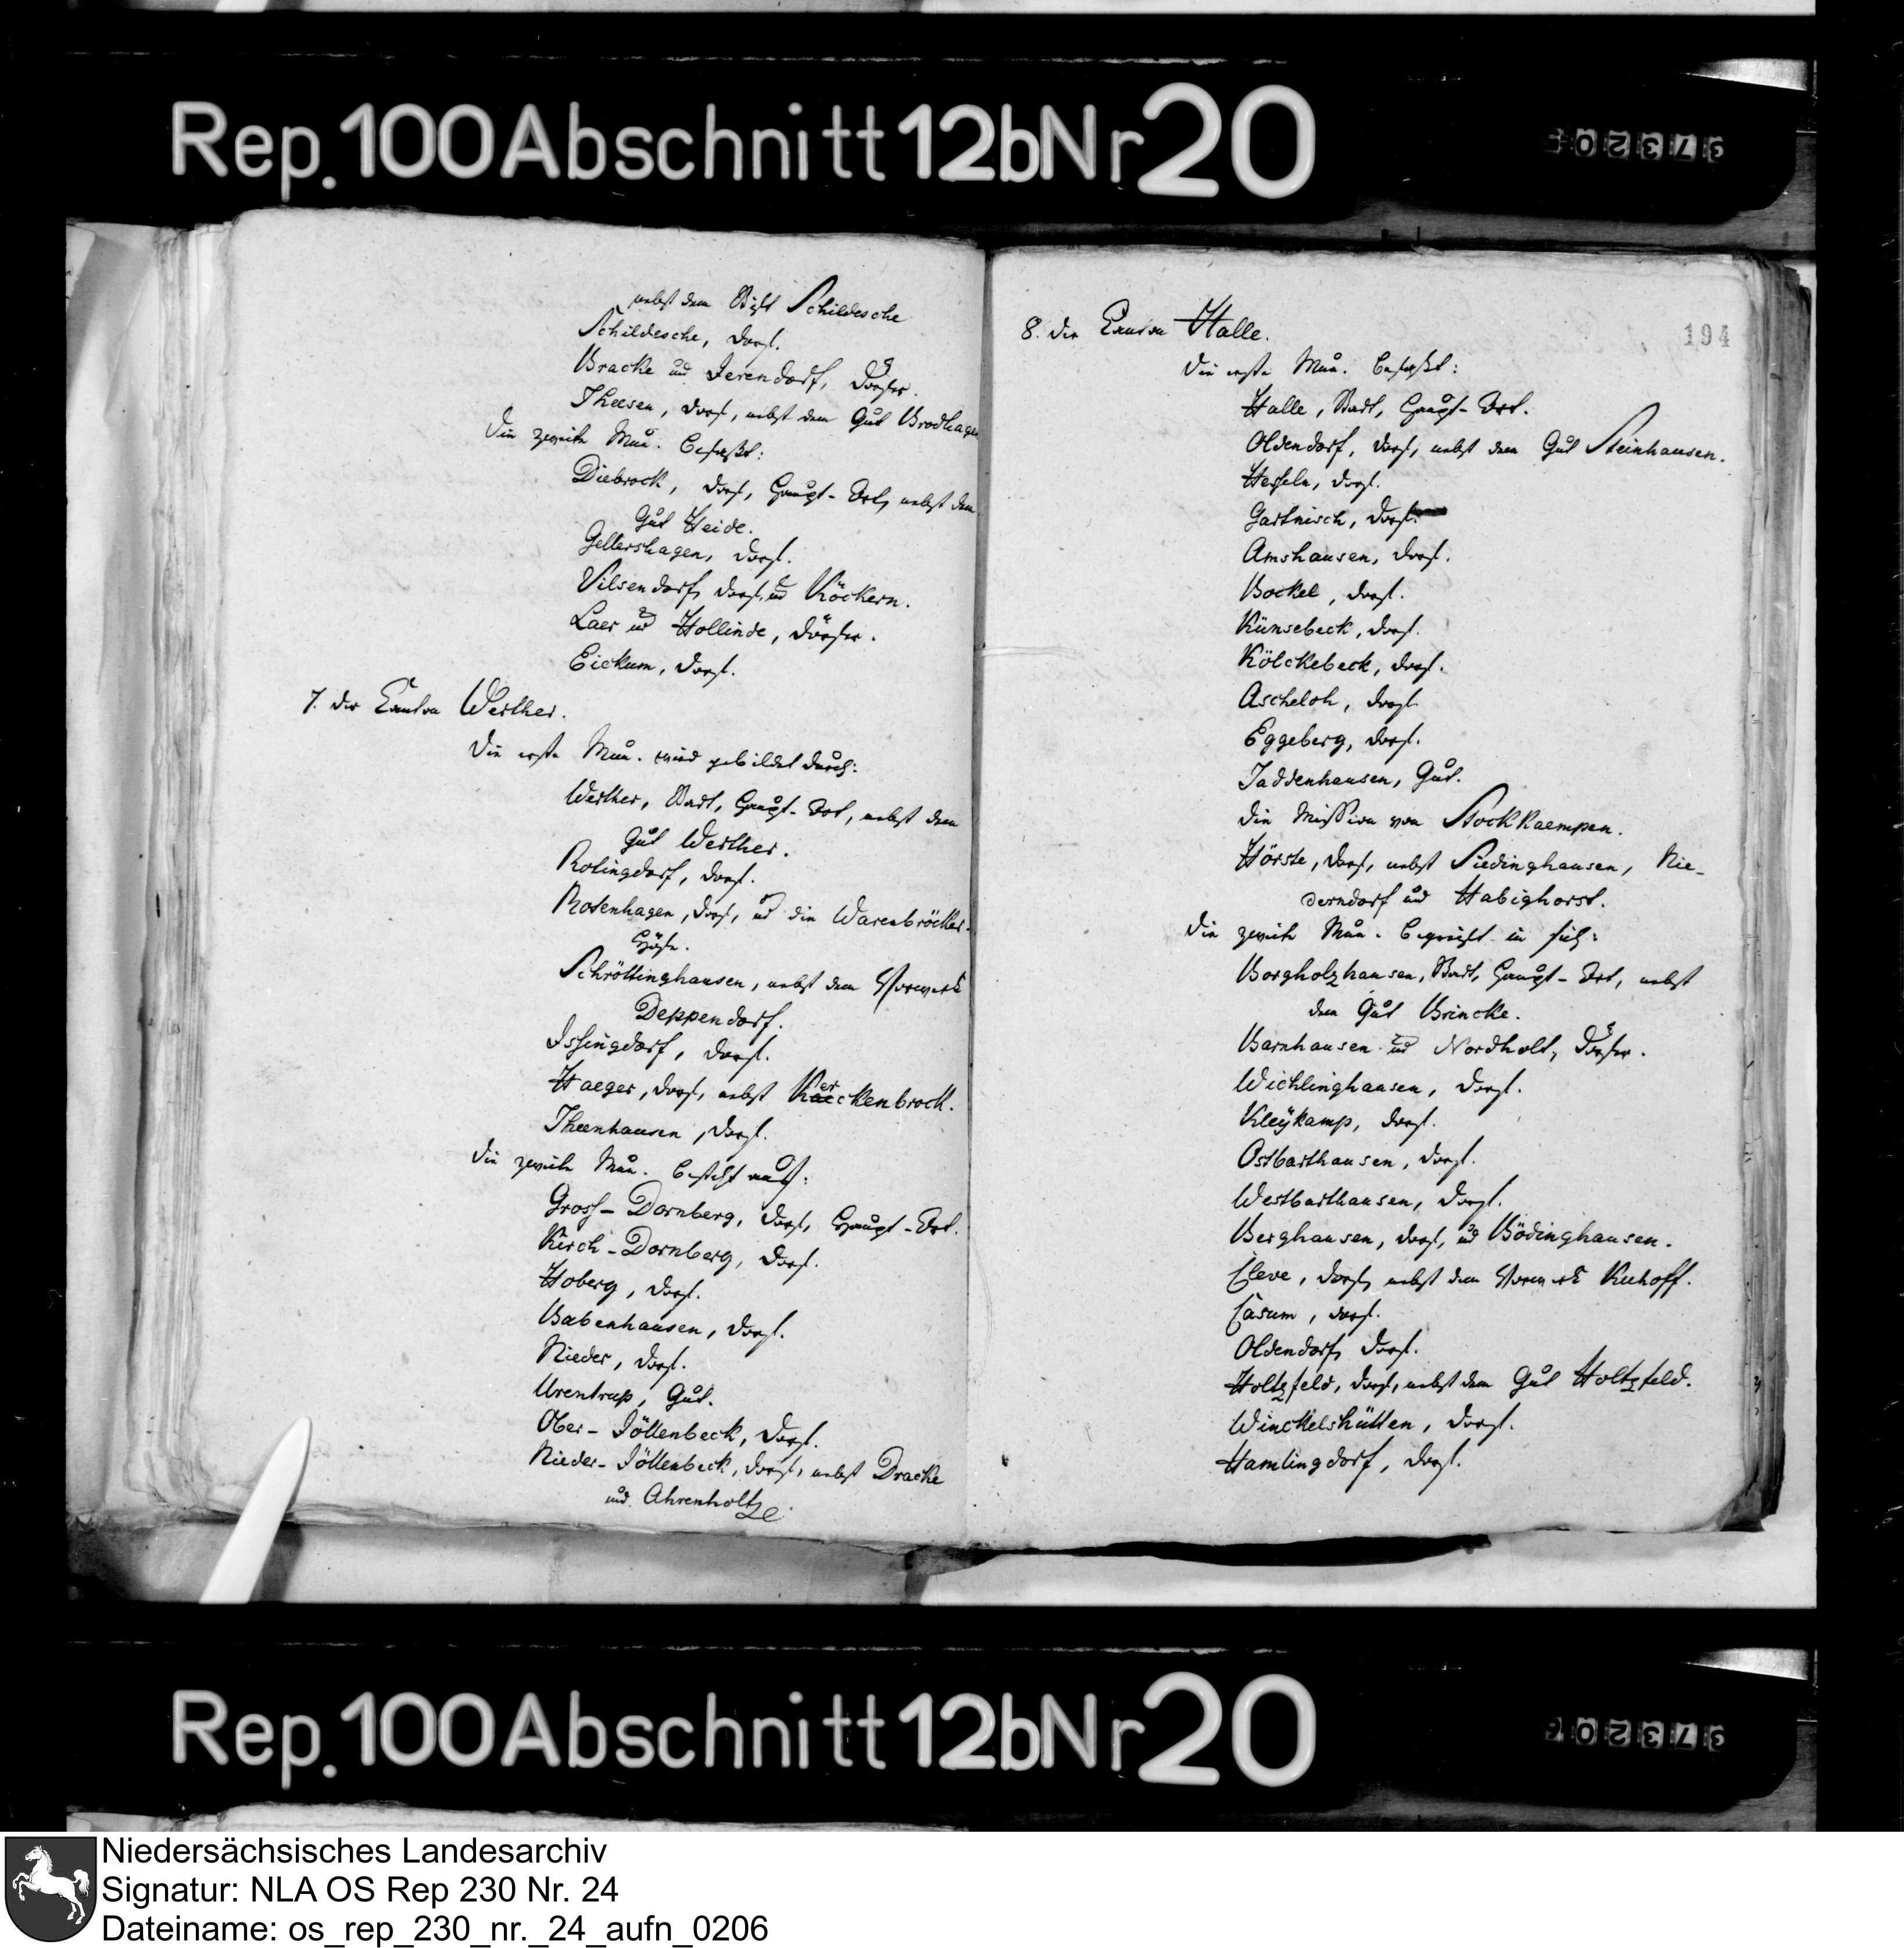 Rep. 100 Abschnitt 12b Nr 20
nebst dem Stift Schildesche
Schildesche, Dorf.
Bracke und Jerendorf, Dörfer.
Theesen, Dorf, nebst dem Gut Brodhagen
Die zweite Mun. befaßt:
Diebrock, Dorf, Haupt-Ort, nebst dem
Gut Heide.
Gellershagen, Dorf.
Vilsendorf, Dorf, und Köckern.
Laer und Hollinde, Dörfer.
Eickum, Dorf.
7. der Canton Werther.
Die erste Mun. wird gebildet durch:
Werther, Stadt, Haupt-Ort, nebst dem
Gut Werther.
Rotingdorf, Dorf.
Rotenhagen, Dorf, und die Warenbröcker-
Höfe.
Schröttinghausen, nebst dem Vorwerk
Deppendorf.
Issingdorf, Dorf.
Haeger, Dorf, nebst Kerckenbrock.
Theenhausen, Dorf.
Die zweite Mun. besteht aus:
Gross-Dornberg, Dorf, Haupt-Ort.
Kirch-Dornberg, Dorf.
Hoberg, Dorf.
Babenhausen, Dorf.
Nieder, Dorf.
Urentrup, Gut.
Ober-Jöllenbeck, Dorf.
Nieder-Jöllenbeck, Dorf, nebst Dracke
und Ahrenholtz
194
8. der Canton Halle.
Die erste Mun. befaßt:
Halle, Stadt, Haupt-Ort.
Oldendorf, Dorf, nebst dem Gut Steinhausen.
Hesseln, Dorf.
Gartnisch, Dorf.
Amshausen, Dorf.
Bockel, Dorf.
Künsebeck, Dorf.
Kölckebeck, Dorf.
Ascheloh, Dorf
Eggeberg, Dorf.
Taddenhausen, Gut.
Die Mission von Stockkaempen.
Hörste, Dorf, nebst Siedinghausen, Nie-
derndorf und Habighorst.
Die zweite Mun. begreift in sich:
Borgholzhausen, Stadt, Haupt-Ort, nebst
dem Gut Brincke.
Barnhausen und Nordholt, Dörfer.
Wichlinghausen, Dorf.
Kleÿkamp, Dorf.
Ostbarthausen, Dorf.
Westbarthausen, Dorf.
Berghausen, Dorf, und Bödinghausen.
Cleve, Dorf, nebst dem Vorwerk Kuhoff.
Casum, Dorf.
Oldendorf, Dorf.
Holtzfeld, Dorf, nebst dem Gut Holtzfeld.
Winckelshütten, Dorf.
Hamlingdorf, Dorf.
Rep. 100 Abschnitt 12b Nr 20
Niedersächsisches Landesarchiv
Signatur: NLA OS Rep 230 Nr. 24
Dateiname: os_rep_230_nr._24_aufn_0206